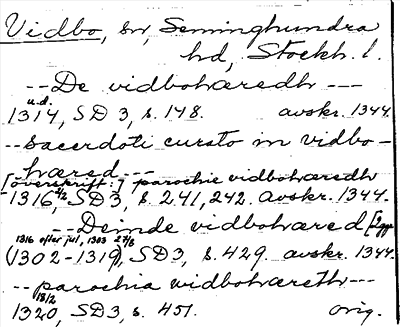 Vidbo, sn, Seminghundra
hd, Stockh. l.
-- De vidbohæredh ---
u.d.
1314, SD 3, s. 148. avskr. 1344.
-- sacerdoti curato in vidbo-
hæred ---
[överskrift:] parochie vidbohæredh
1316 2/2, SD3, s. 241, 242. avskr. 1344.
-- Deinde vidbohæred
1316 efter jul, 1303 27/8
(1302-1319), SD3, s. 429. avskr. 1344.
-- parochia vidbohæreth ---
13/2
1320, SD3, s. 451. orig.